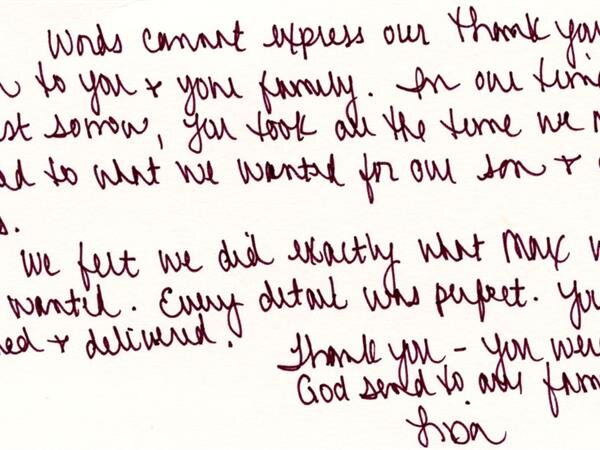 Words cannot express our thank you
to you & your family. In our time
st sorrow, you took all the time we n
d to what we wanted for our son &
s.
We felt we did exactly what Max w
wanted. Every detail was perfect. You
ed & delivered.
Thank you - you were
God send to our fam
Lisa